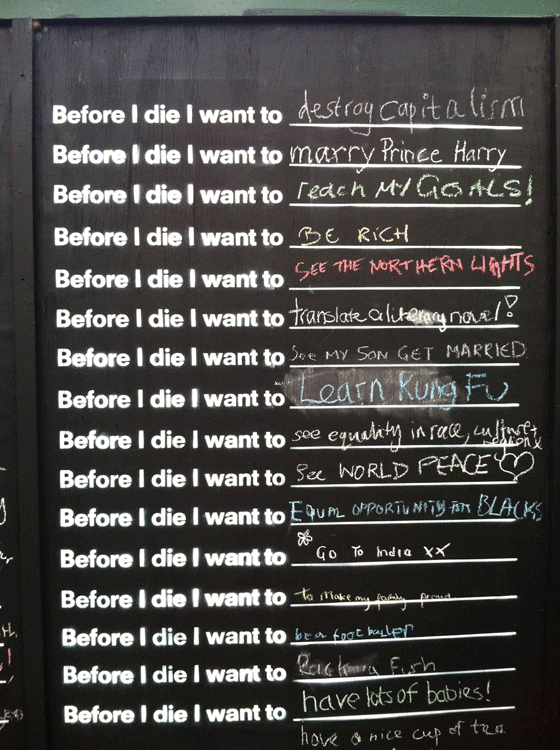 Before I die I want to destroy capitalism
Before I die I want to marry Prince Harry
Before I die I want to reach MY GOALS!
Before I die I want to BE RICH
Before I die I want to SEE THE NORTHERN LIGHTS
Before I die I want to translate a literary novel!
Before I die I want to See MY SON GET MARRIED
Before I die I want to Learn Kung Fu
Before I die I want to see equality in race, culture +
religion x
Before I die I want to See WORLD PEACE
Before I die I want to EQUAL OPPORTUNITY FOR BLACKS
Before I die I want to Go To India XX
Before I die I want to to make my family proud
Before I die I want to be a footballer
Before I die I want to Fish
Before I die I want to have lots of babies!
have a nice cup of tea